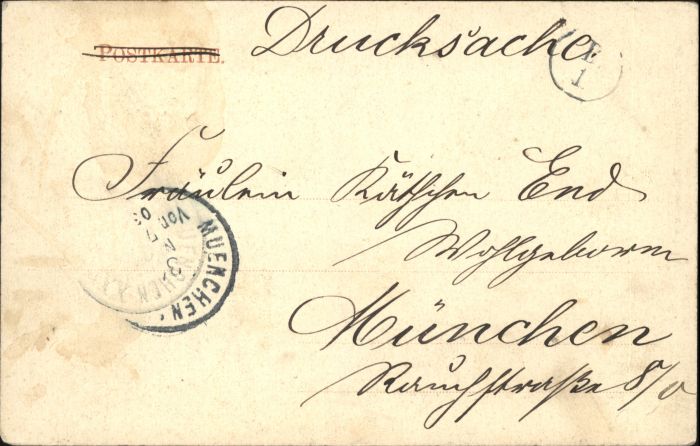 POSTKARTE. Drucksache.
B
1
Fräulein Käthchen End
Wohlgeboren
München
Rauchstraße 8/0
MUENCHEN
VOR
03
3